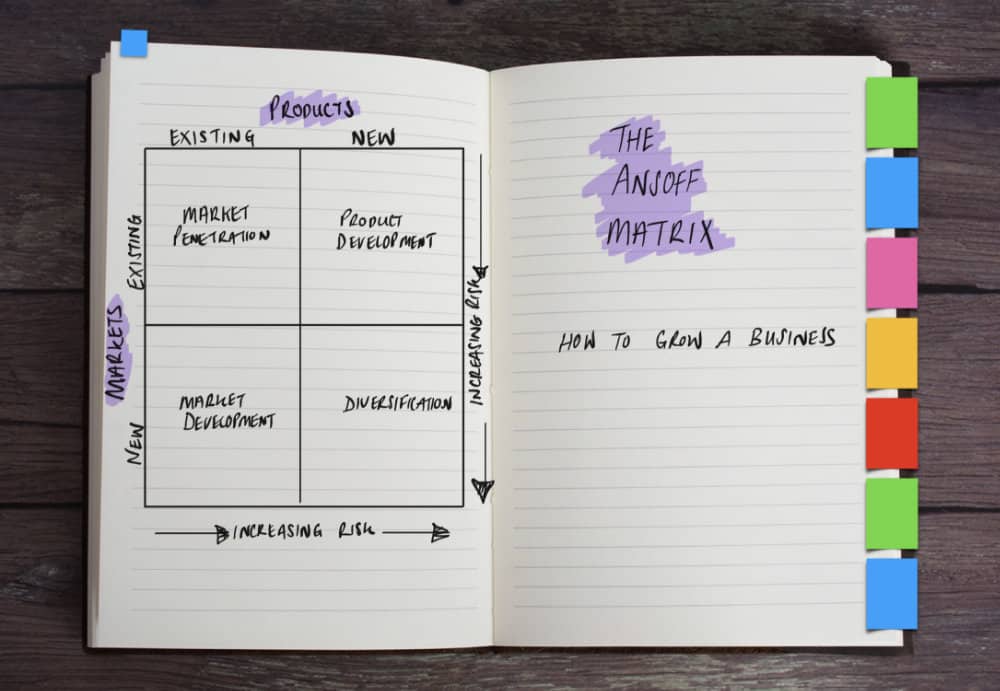 PRODUCTS
EXISTING
NEW
EXISTING
MARKET
PENETRATION
PRODUCT
DEVELOPMENT
MARKETS
NEW
MARKET
DEVELOPMENT
DIVERSIFICATION
INCREASING RISK
INCREASING RISK
THE
ANSOFF
MATRIX
HOW TO GROW A BUSINESS